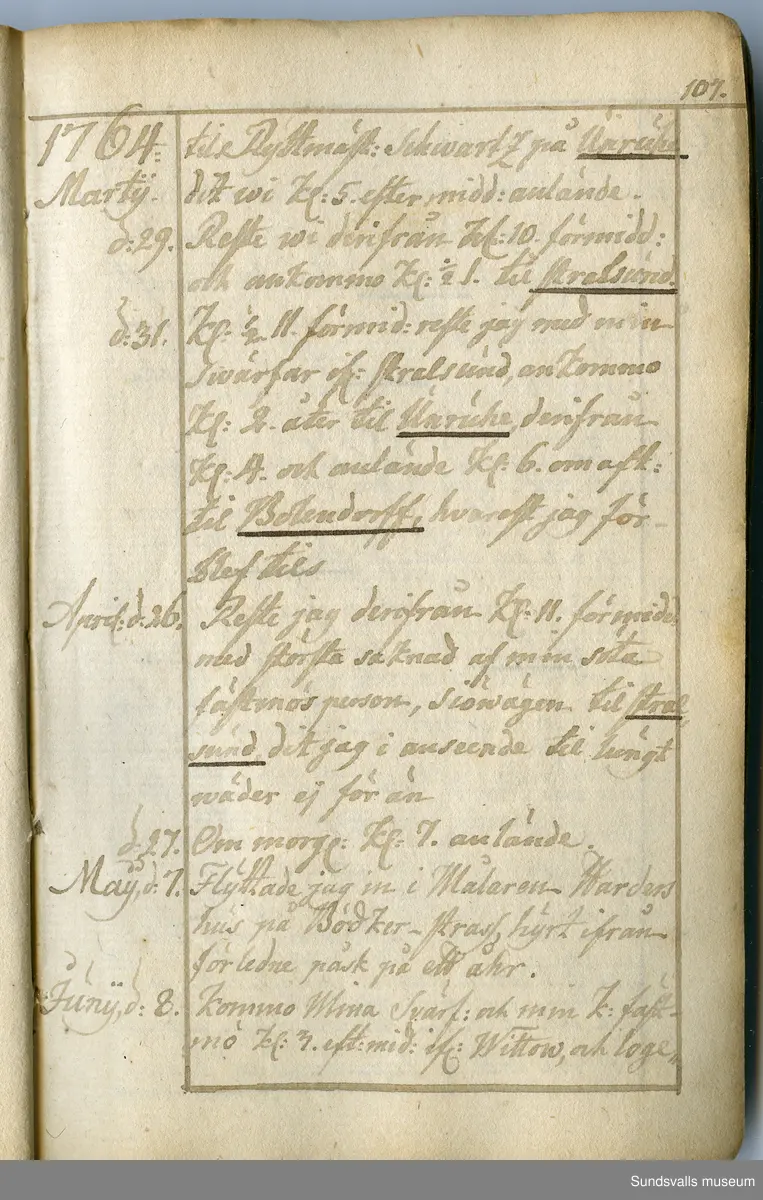 107.
1764. til Ryttmäst: Schwartz på Üaruhe
Martÿ. dit wi Kl: 5. efter midd: anlände.
d: 29. Reste wi derifrån Kl: 10. förmidd:
och ankommo Kl: ½ 1. til Stralsund.
d: 31. Kl: ½ 11. förmid: reste jag med min
Swärfar ifr: Stralsund, ankommo
Kl: 2. åter til Üaruhe, derifrån
Kl: 4. och anlände Kl: 6. om aft:
til Bohlendorff, hvarest jag för-
blef tils
April: d: 26. Reste jag derifrån Kl: 11. förmidd:
med största saknad af min söta
fästmös person, siöwägen til Stral
sund, dit jag i anseende til lungt
wäder ej för än
d: 27. Om morg: Kl: 7. anlände.
Maÿ, d: 7. Flÿttade jag in i Målaren Warders
hus på Bödker-strass, hÿrt ifrån
förledne påsk på ett åhr.
Junÿ, d: 8. Kommo Mina Svärf: och min K: fäst-
mö Kl: 7. eft: mid: ifr: Wittow, och loge„
Sundsvalls museum